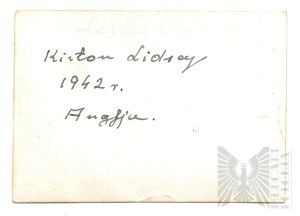 Kirton Lidsey
1942 r.
Anglja.